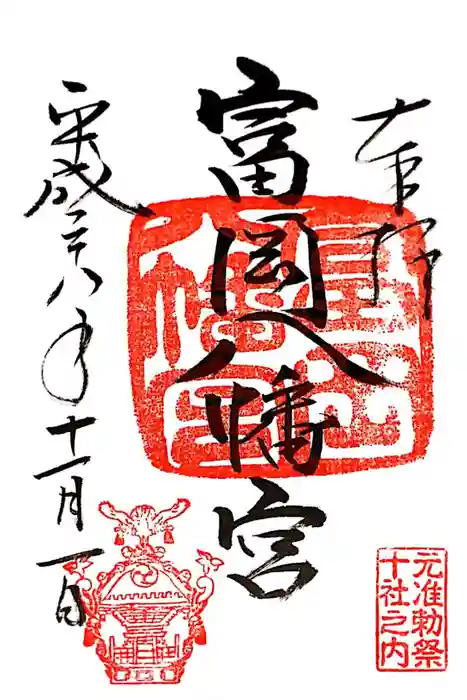 奉拝
富岡八幡宮
富岡八幡宮
平成二十八年十一月一日
元准勅祭
十社之内